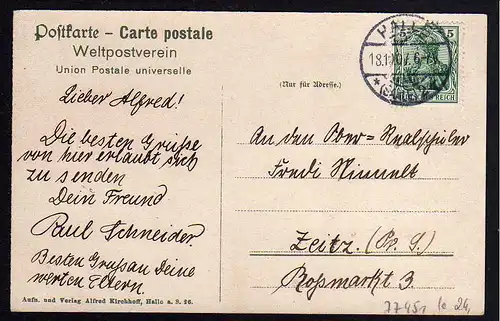 Postkarte – Carte postale
Weltpostverein
Union Postale universelle
(Nur für Adresse.)
HALLE
5
REICH
Lieber Alfred!
Die besten Grüße
von hier erlaubt sich
zu senden
Dein Freund
Paul Schneider.
Besten Gruß an Deine
werten Eltern.
An den Ober=Realschüler
Fredi
Zeitz.
Roßmarkt 3.
Aufn. und Verlag Alfred Kirchhoff, Halle a. S. 26.